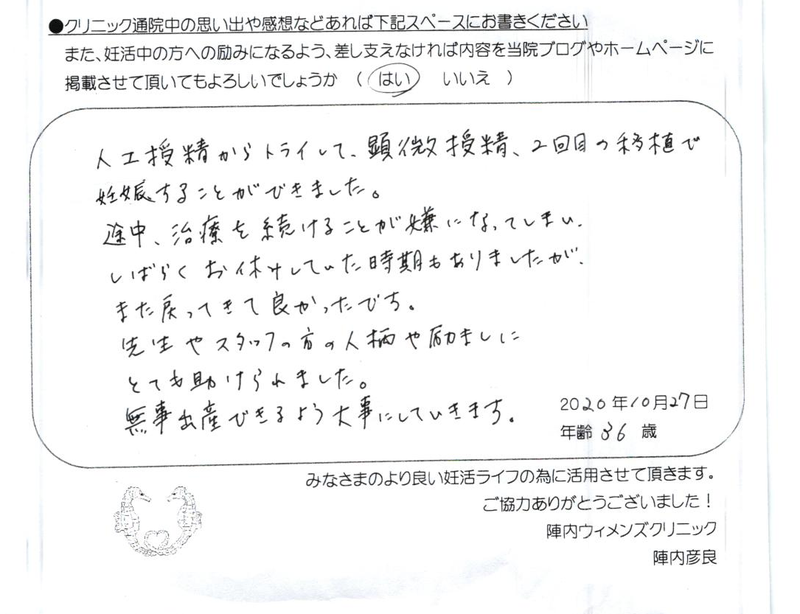 ●クリニック通院中の思い出や感想などあれば下記スペースにお書きください
また、妊活中の方への励みになるよう、差し支えなければ内容を当院ブログやホームページに
掲載させて頂いてもよろしいでしょうか （ はい　いいえ ）
人工授精からトライして、顕微授精、2回目の移植で
妊娠することができました。
途中、治療を続けることが嫌になってしまい、
しばらくお休みしていた時期もありましたが、
また戻ってきて良かったです。
先生やスタッフの方の人柄や励ましに
とても助けられました。
無事出産できるよう大事にしていきます。
2020年10月27日
年齢 36 歳
みなさまのより良い妊活ライフの為に活用させて頂きます。
ご協力ありがとうございました！
陣内ウィメンズクリニック
陣内彦良